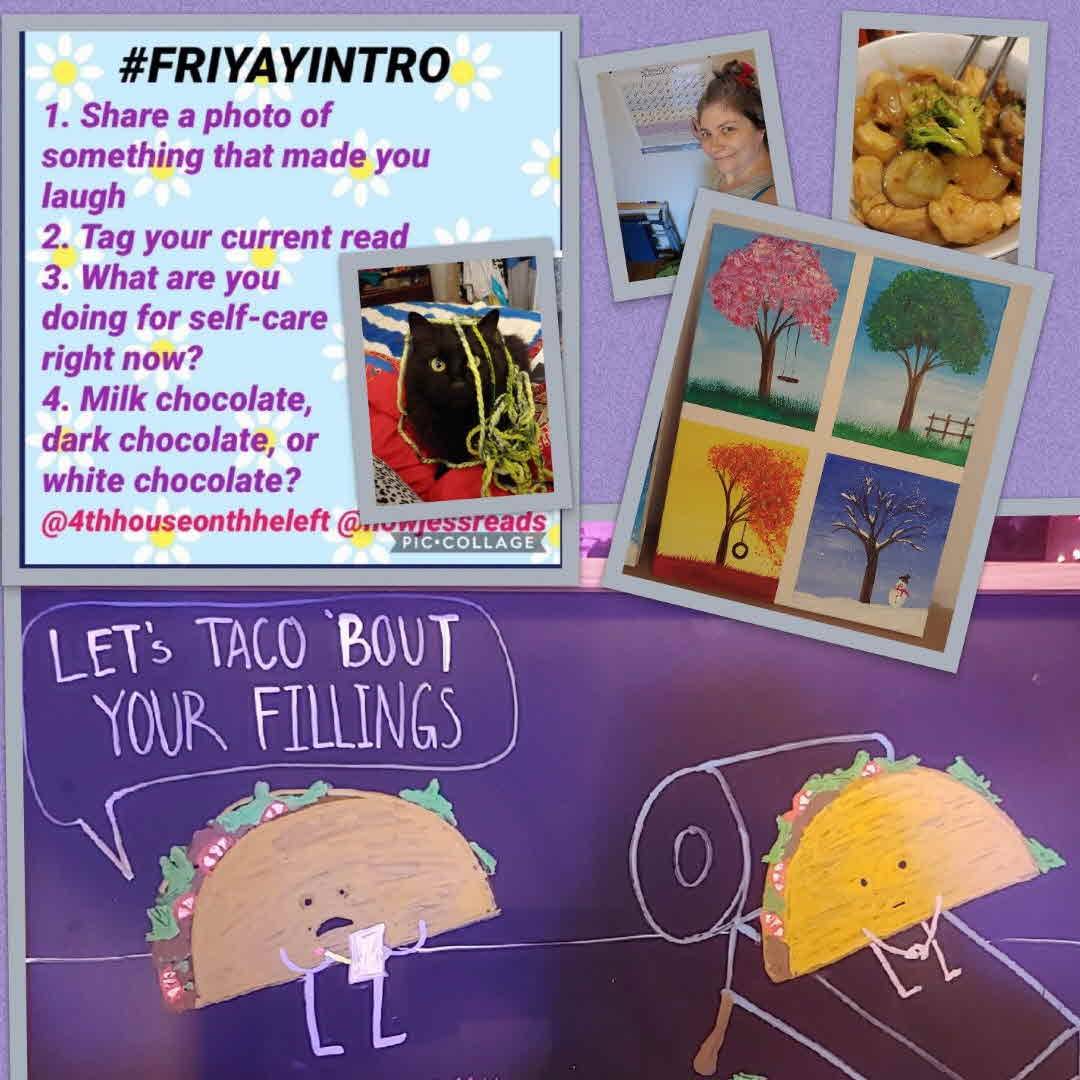 #FRIYAYINTRO
1. Share a photo of
something that made you
laugh
2. Tag your current read
3. What are you
doing for self-care
right now?
4. Milk chocolate,
dark chocolate, or
white chocolate?
@4thhouseonthheleft @howjessreads
PIC•COLLAGE
LET's TACO 'BOUT
YOUR FILLINGS